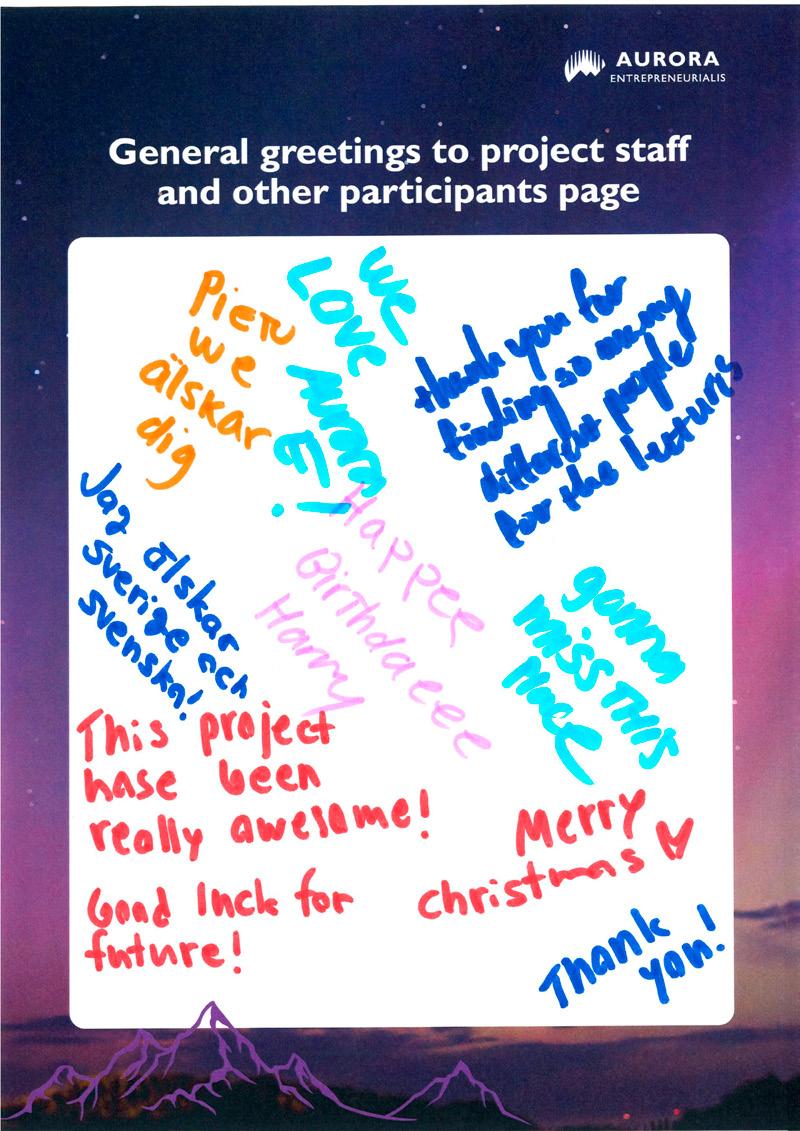 AURORA
ENTREPRENEURIALIS
General greetings to project staff
and other participants page
Pietu
we
älskar
dig
We
LOVE
Aurora
E!
thank you for
finding so many
different people
for the lecturis
Jag älskar
Sverige och
svenska!
Happee
Birthdaeee
Harry
gonna
miss THIS
Place
This project
hase been
really awesome!
Good luck for
future!
Merry
christmas
Thank
you!